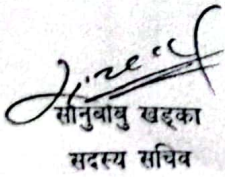 सानुबाबु खड्का
सदस्य सचिव